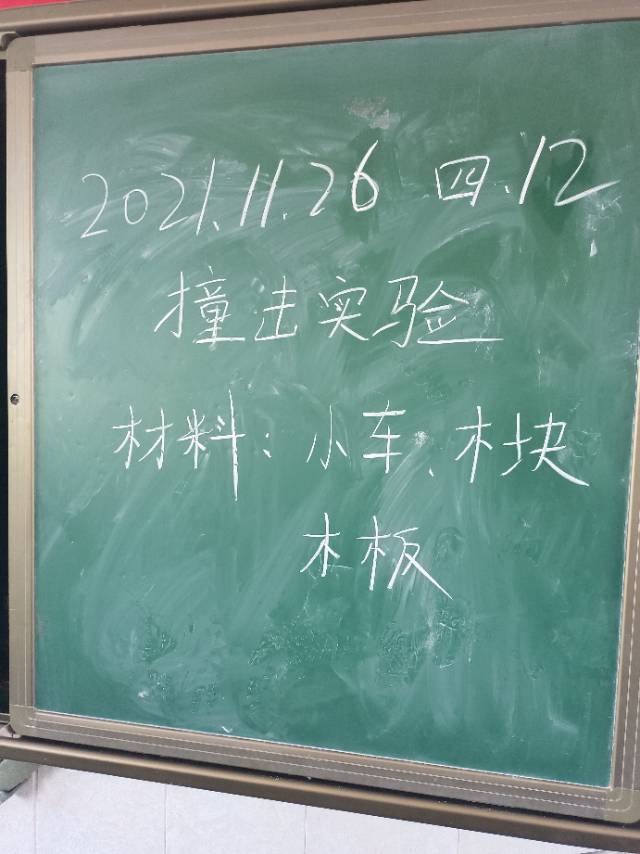 2021.11.26 四.12
撞击实验
材料:小车、木块
木板